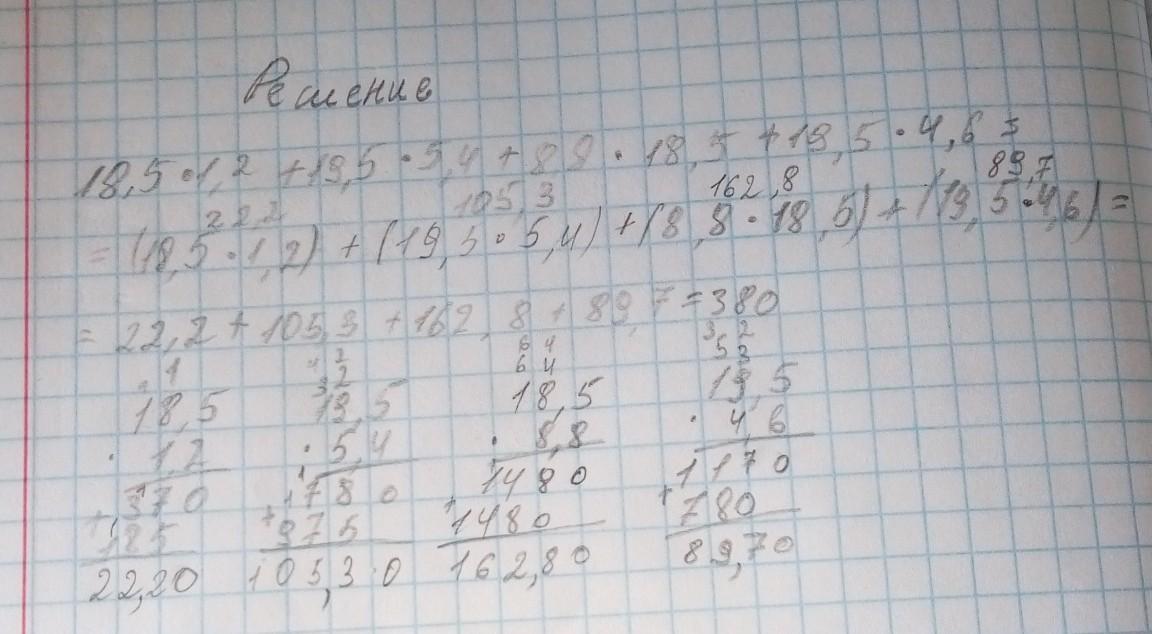 Решение
18,5·1,2+19,5·5,4+8,8·18,5+19,5·4,6=
22,2 105,3 162,8 89,7
=(18,5·1,2)+(19,5·5,4)+(8,8·18,5)+(19,5·4,6)=
=22,2+105,3+162,8+89,7=380
18,5 19,5 18,5 19,5
· 1,2 · 5,4 · 8,8 · 4,6
370 780 1480 1170
+185 +975 +1480 +780
22,20 105,30 162,80 89,70